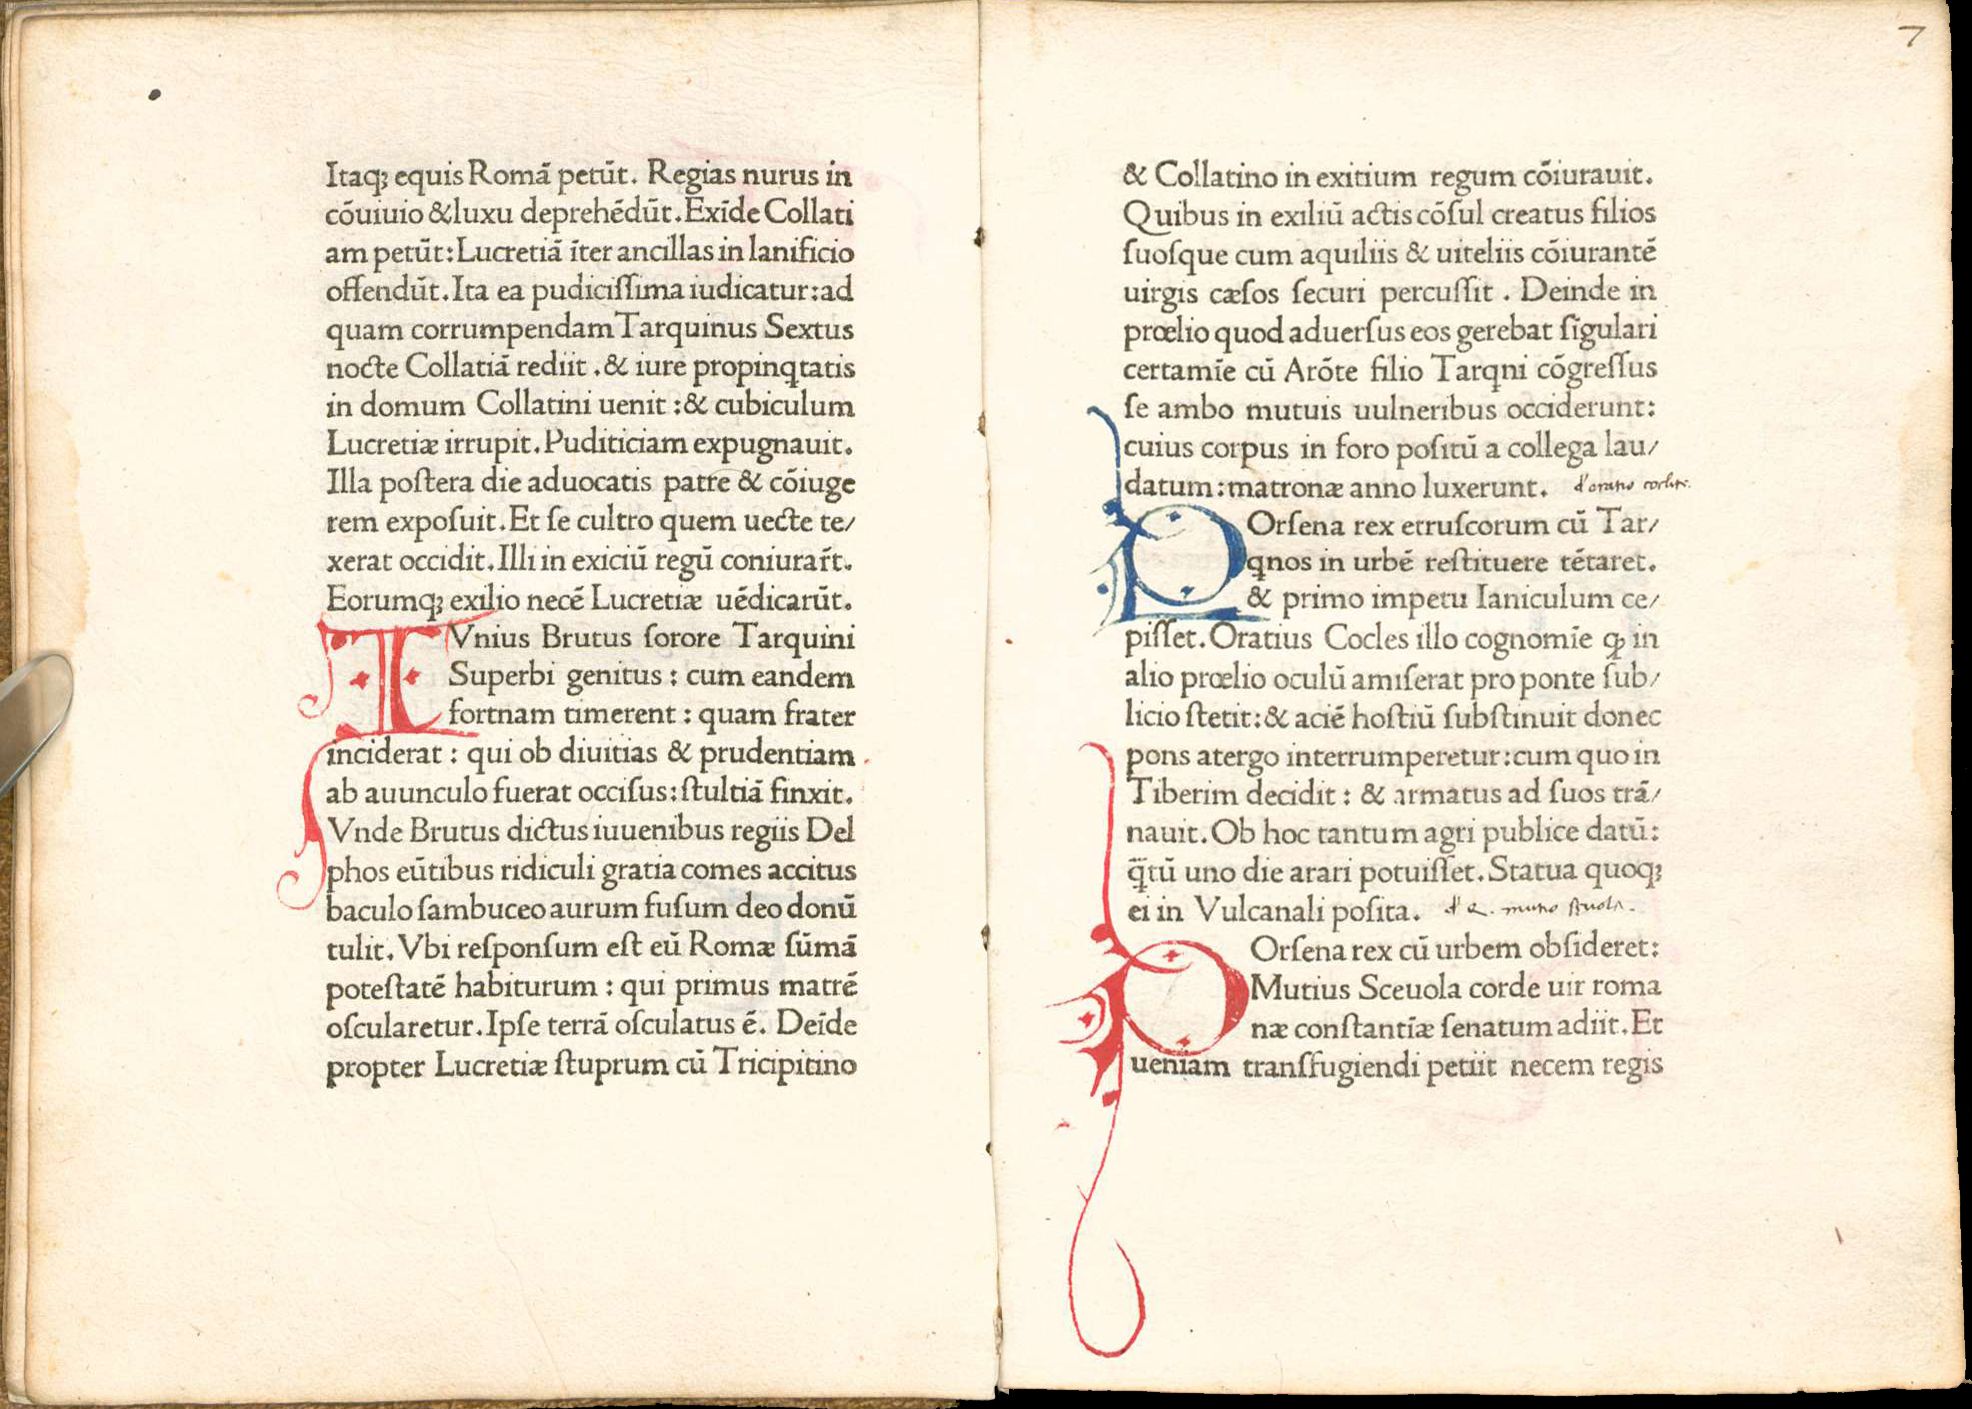 Itaq; equis Romã petũt. Regias nurus in
cõuiuio &luxu deprehẽdũt. Exĩde Collati
am petũt: Lucretiã ĩter ancillas in lanificio
offendũt. Ita ea pudiciſſima iudicatur: ad
quam corrumpendam Tarquinus Sextus
nocte Collatiã rediit .& iure propinqtatis
in domum Collatini uenit :& cubiculum
Lucretiæ irrupit. Puditiciam expugnauit.
Illa poſtera die aduocatis patre & cõiuge
rem expoſuit. Et ſe cultro quem uecte te/
xerat occidit. Illi in exiciũ regũ coniurar̃t.
Eorumq; exilio necẽ Lucretiæ uẽdicarũt.
IVnius Brutus ſorore Tarquini
Superbi genitus : cum eandem
fortnam timerent : quam frater
inciderat : qui ob diuitias & prudentiam
ab auunculo fuerat occiſus: ſtultiã finxit.
Vnde Brutus dictus iuuenibus regiis Del
phos eũtibus ridiculi gratia comes accitus
baculo ſambuceo aurum fuſum deo donũ
tulit. Vbi reſponſum eſt eũ Romæ ſũmã
poteſtatẽ habiturum : qui primus matrẽ
oſcularetur. Ipſe terrã oſculatus ẽ. Deĩde
propter Lucretiæ ſtuprum cũ Tricipitino
7
& Collatino in exitium regum cõiurauit.
Quibus in exiliũ actis cõſul creatus filios
ſuoſque cum aquiliis & uiteliis cõiurantẽ
uirgis cæſos ſecuri percuſſit . Deinde in
prœlio quod aduerſus eos gerebat ſĩgulari
certamĩe cũ Arõte filio Tarqni cõgreſſus
ſe ambo mutuis uulneribus occiderunt:
cuius corpus in foro poſitũ a collega lau/
datum: matronæ anno luxerunt. d'oratio coclite.
POrſena rex etruſcorum cũ Tar/
qnos in urbẽ reſtituere tẽtaret.
& primo impetu Ianiculum ce/
piſſet. Oratius Cocles illo cognomĩe ꝙ in
alio prœlio oculũ amiſerat pro ponte ſub/
licio ſtetit: & aciẽ hoſtiũ ſubſtinuit donec
pons atergo interrumperetur: cum quo in
Tiberim decidit : & armatus ad ſuos trã/
nauit. Ob hoc tantum agri publice datũ:
q̃tũ uno die arari potuiſſet. Statua quoq;
ei in Vulcanali poſita.
POrſena rex cũ urbem obſideret:
Mutius Sceuola corde uir roma
næ conſtantĩæ ſenatum adiit. Et
ueniam tranſfugiendi petiit necem regis